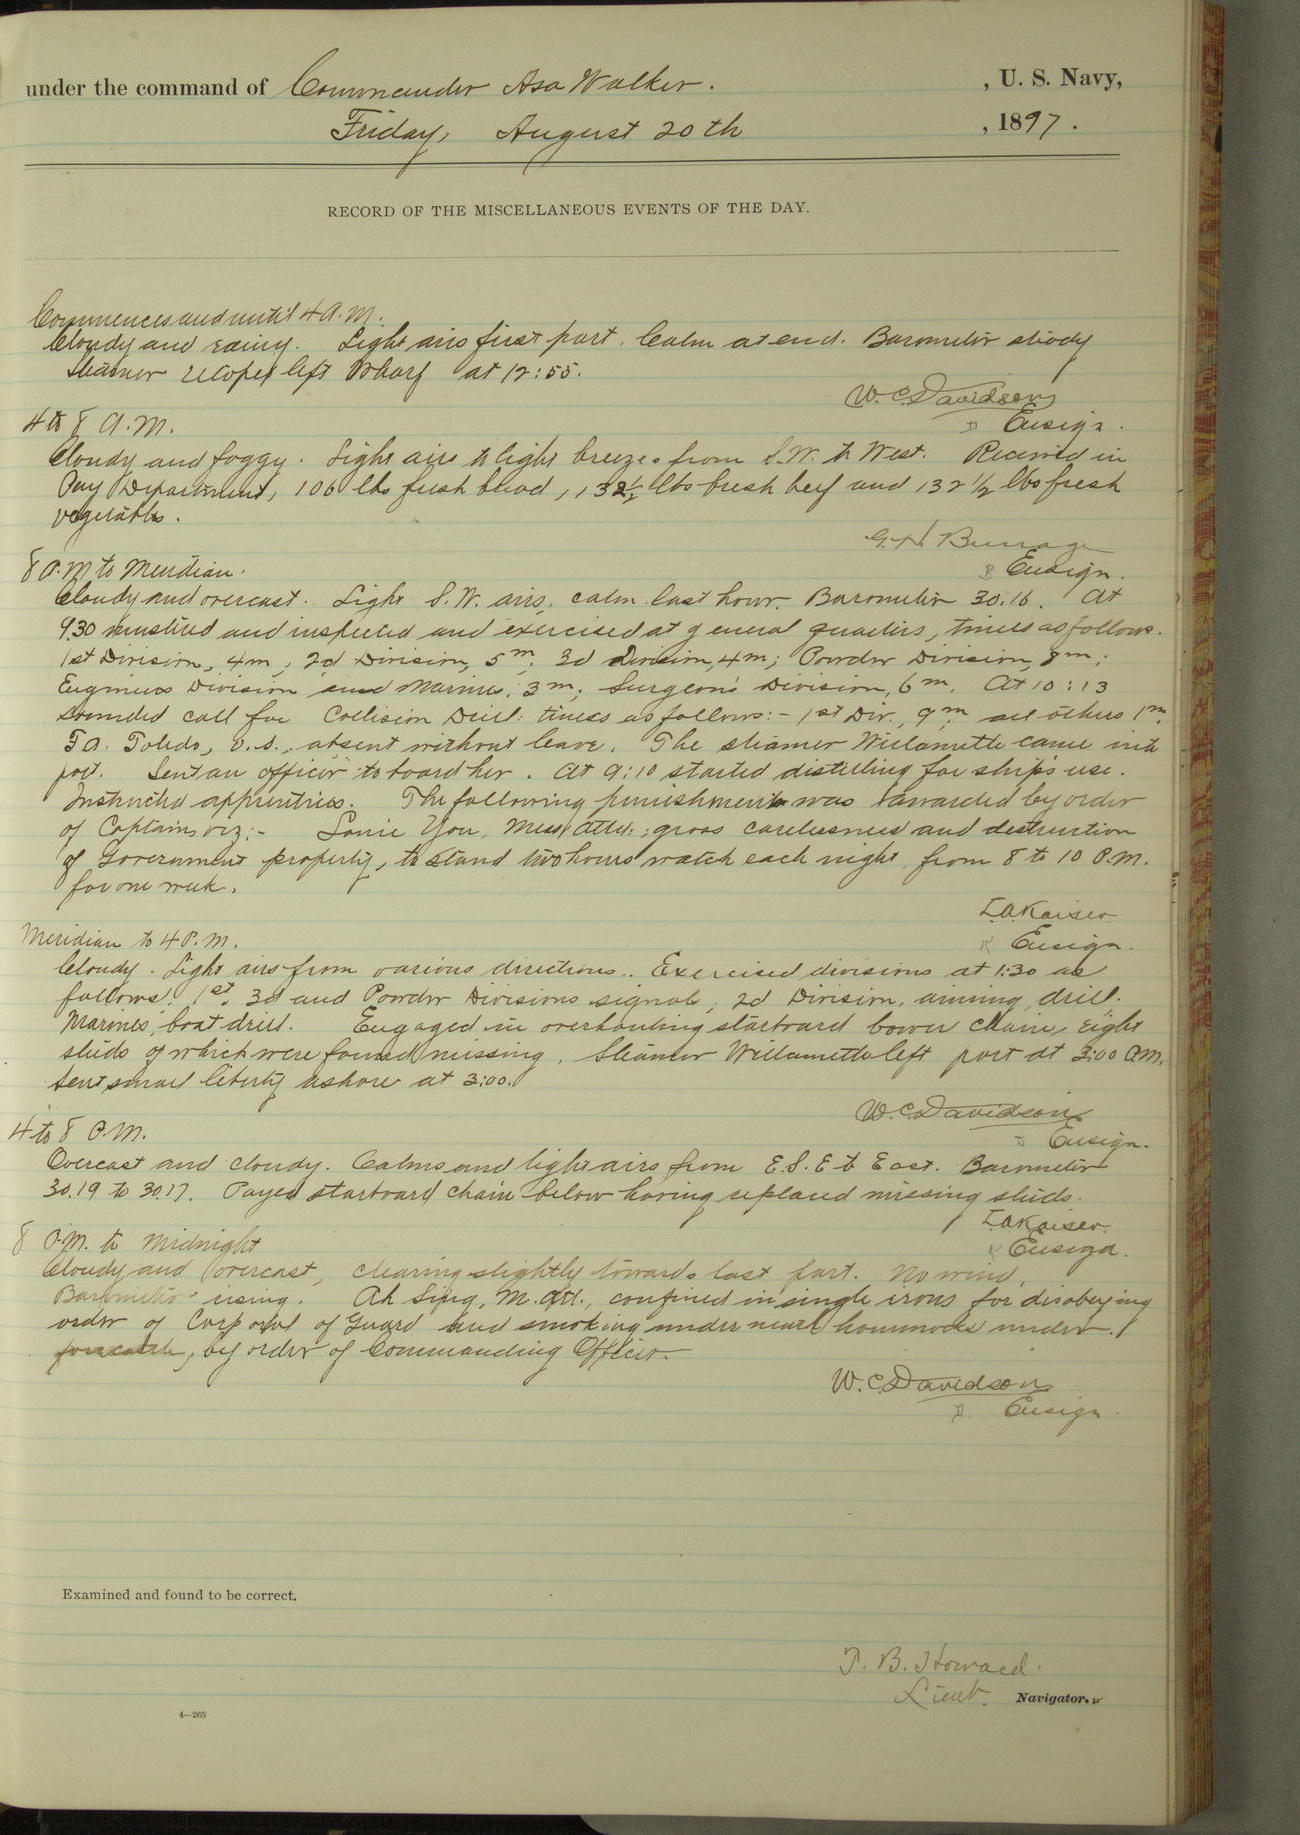 under the command of Commander Asa Walker. , U. S. Navy,
Friday, August 20th , 1897.
RECORD OF THE MISCELLANEOUS EVENTS OF THE DAY.
Commences and until 4 A.M.
Cloudy and rainy. Light airs first part. Calm at end. Barometer steady
Steamer left Wharf at 12:55.
W. C. Davidson
Ensign.
4 to 8 A.M.
Cloudy and foggy. Light airs to light breezes from S.W. to West. Received in
Pay Department, 106 lbs fresh bread, 132½ lbs fresh beef and 132½ lbs fresh
vegetables.
G.H. Burrage
Ensign.
8 A.M to Meridian.
Cloudy and overcast. Light S.W. airs, calm last hour. Barometer 30.16. At
9.30 mustered and inspected and exercised at general quarters, times as follows.
1st Division, 4m; 2d Division, 5m; 3d Division, 4m; Powder Division, 8m;
Engineers Division and Marines, 3m; Surgeon's Division, 6m. At 10:13
sounded call for Collision Drill: times as follows:- 1st Div., 9m all others 1m
Toledo, absent without leave. The steamer Willamette came into
port. Sent an officer to board her. At 9:10 started distilling for ship's use.
Instructed apprentices. The following punishment was awarded by order
of Captain, viz:- You, Mess Att; gross carelessness and destruction
of Government property, to stand two hours watch each night from 8 to 10 P.M.
for one week.
L.A Kaiser
Ensign.
Meridian to 4 P.M.
Cloudy. Light airs from various directions. Exercised divisions at 1:30 as
follows: 1st, 3d and Powder Divisions signals; 2d Division, aiming drill.
Marines, boat drill. Engaged in overhauling starboard bower chain, eight
studs of which were found missing. Steamer Willamette left port at 3:00 P.M.
Sent small liberty ashore at 3:00.
W. C. Davidson
Ensign.
4 to 8 P.M.
Overcast and cloudy. Calms and light airs from E.S.E to East. Barometer
30.19 to 30.17. Payed starboard chain below having replaced missing studs.
L.A Kaiser.
Ensign.
8 P.M. to Midnight
Cloudy and overcast, clearing slightly towards last part. No wind.
Barometer rising. Ah Sing, M. Att., confined in single irons for disobeying
order of Corporal of Guard and smoking under hammocks under
forecastle, by order of Commanding Officer.
W. C. Davidson
Ensign.
Examined and found to be correct.
T. B. Howard.
Lieut. Navigator.
4—265